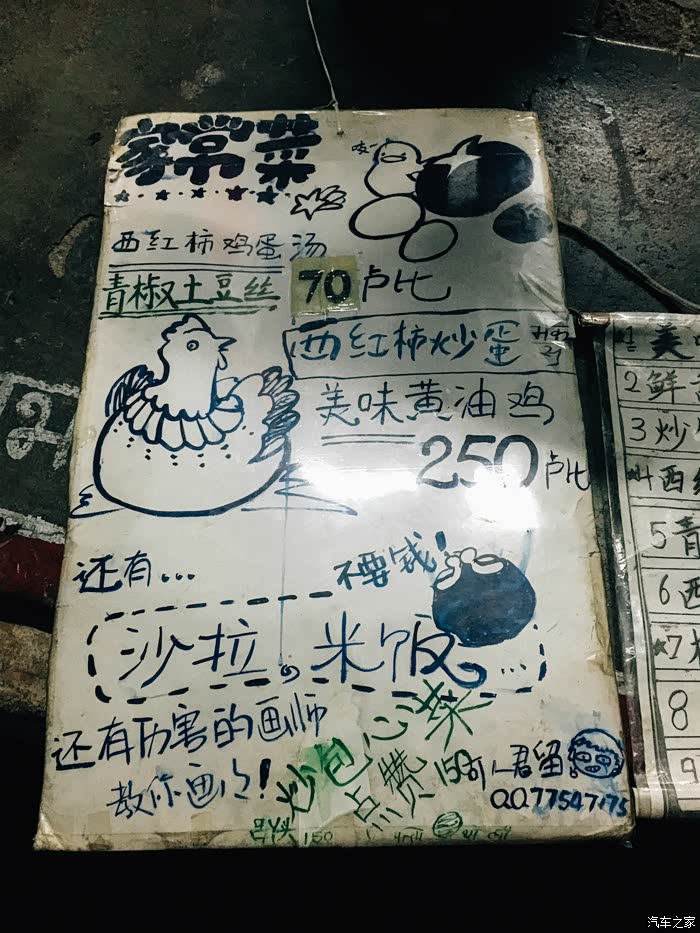 家常菜
咦~
西红柿鸡蛋汤
青椒土豆丝 70 卢比
西红柿炒蛋
美味黄油鸡
250 卢比
还有...
不要钱!
沙拉。米饭。...
还有厉害的画师
教你画画!
炒包心菜
点赞
150
君留
QQ77547175
150
1 美
2 鲜
3 炒
4 西红
5 青
6 西
7
8
9
汽车之家